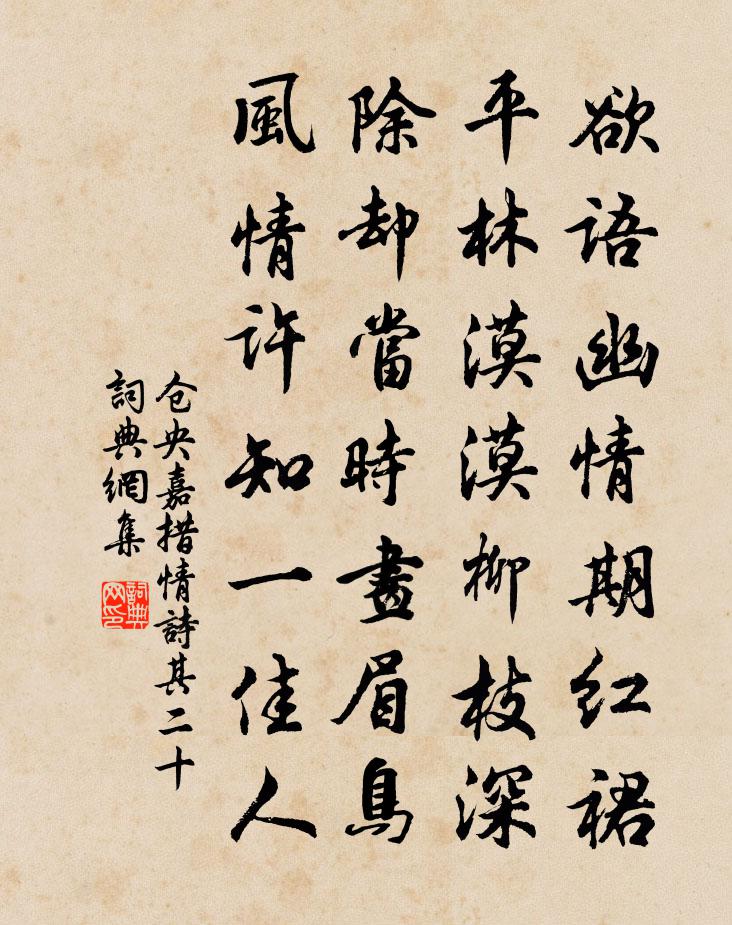 欲語幽情期紅裙
平林漠漠柳枝深
除却當時畫眉鳥
風情許知一佳人
仓央嘉措情詩其二十
詞典網集
詞典网印